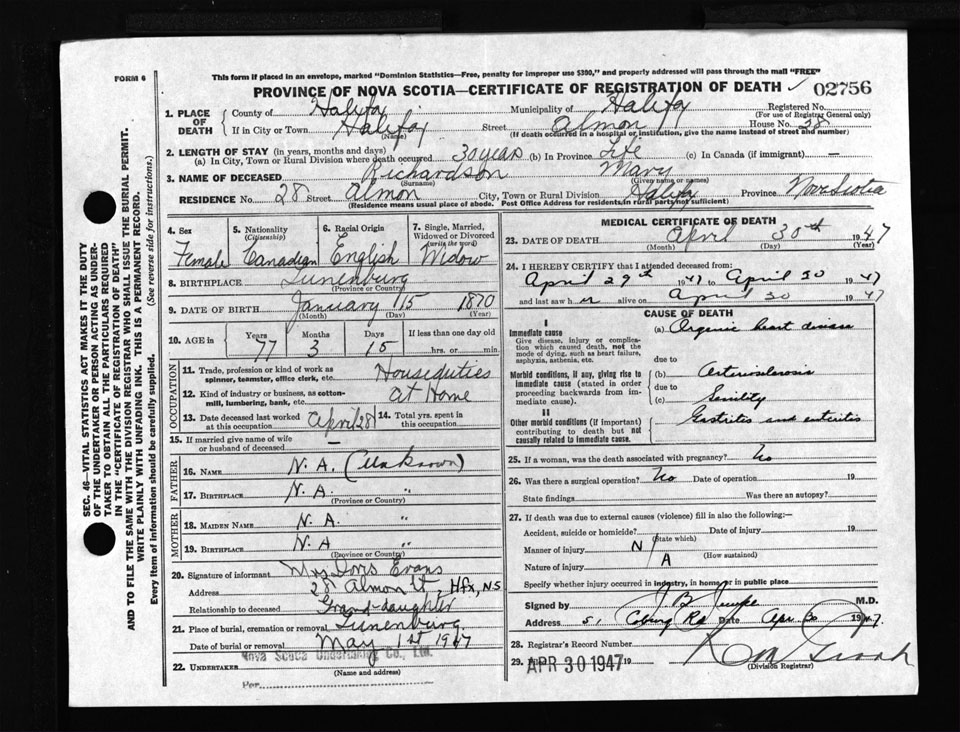 FORM 6
This form if placed in an envelope, marked "Dominion Statistics—Free, penalty for improper use $300," and properly addressed will pass through the mail "FREE"
PROVINCE OF NOVA SCOTIA—CERTIFICATE OF REGISTRATION OF DEATH ✓ 02756
1. PLACE OF DEATH County of Halifax Municipality of Halifax Registered No.
(For use of Registrar General only)
If in City or Town Halifax (Name) Street Almon House No. 28
(If death occurred in a hospital or institution, give the name instead of street and number)
2. LENGTH OF STAY (in years, months and days)
(a) In City, Town or Rural Division where death occurred 30 years (b) In Province Life (c) In Canada (if immigrant) —
3. NAME OF DECEASED Richardson Mary
(Surname) (Given name or names)
RESIDENCE No. 28 Street Almon City, Town or Rural Division Halifax Province Nova Scotia
(Residence means usual place of abode. Post Office Address for residents in rural parts not sufficient)
4. Sex 5. Nationality (Citizenship) 6. Racial Origin 7. Single, Married, Widowed or Divorced (write the word)
Female Canadian English Widow
8. BIRTHPLACE Lunenburg
(Province or Country)
9. DATE OF BIRTH January 15 1870
(Month) (Day) (Year)
10. AGE in Years Months Days If less than one day old
77 3 15 hrs. or min.
OCCUPATION
11. Trade, profession or kind of work as spinner, teamster, office clerk, etc. Houseduties
12. Kind of industry or business, as cotton-mill, lumbering, bank, etc. At Home
13. Date deceased last worked at this occupation April 28 14. Total yrs. spent in this occupation
15. If married give name of wife or husband of deceased —
FATHER
16. NAME N. A. (Unknown)
17. BIRTHPLACE N. A. "
(Province or Country)
MOTHER
18. MAIDEN NAME N. A. "
19. BIRTHPLACE N. A "
(Province or Country)
20. Signature of informant Mrs Doris Evans
Address 28 Almon St, Hfx, N.S
Relationship to deceased Grand-daughter
21. Place of burial, cremation or removal Lunenburg
Date of burial or removal May 1st 1947
22. UNDERTAKER Nova Scotia Undertaking Co., Ltd.
(Name and address)
Per
MEDICAL CERTIFICATE OF DEATH
23. DATE OF DEATH April 30th 1947
(Month) (Day) (Year)
24. I HEREBY CERTIFY that I attended deceased from:
April 29th 1947 to April 30 1947
and last saw her alive on April 30 1947
CAUSE OF DEATH
I
Immediate cause (a) Organic heart disease
Give disease, injury or complication which caused death, not the mode of dying, such as heart failure, asphyxia, asthenia, etc.
due to
Morbid conditions, if any, giving rise to immediate cause (stated in order proceeding backwards from immediate cause).
(b) Arteriosclerosis
due to
(c) Senility
II
Other morbid conditions (if important) contributing to death but not causally related to immediate cause.
Gastritis and enteritis
25. If a woman, was the death associated with pregnancy? No
26. Was there a surgical operation? No Date of operation 19
State findings Was there an autopsy?
27. If death was due to external causes (violence) fill in also the following:—
Accident, suicide or homicide? Date of injury 19
(State which)
Manner of injury N
(How sustained)
Nature of injury A
Specify whether injury occurred in industry, in home, or in public place
Signed by J. B. M.D.
Address 51 Coburg Rd Date Apr. 30 1947.
28. Registrar's Record Number
29. APR 30 1947 19
(Division Registrar)
SEC. 46—VITAL STATISTICS ACT MAKES IT THE DUTY OF THE UNDERTAKER OR PERSON ACTING AS UNDERTAKER TO OBTAIN ALL THE PARTICULARS REQUIRED IN THE "CERTIFICATE OF REGISTRATION OF DEATH" AND TO FILE THE SAME WITH THE DIVISION REGISTRAR WHO SHALL ISSUE THE BURIAL PERMIT.
WRITE PLAINLY WITH UNFADING INK. THIS IS A PERMANENT RECORD.
Every item of Information should be carefully supplied. (See reverse side for instructions.)